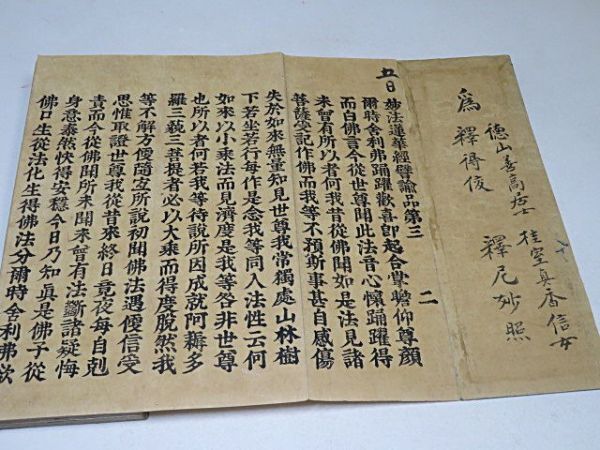 為
德山善高居士
桂室真香信女
釋得俊
釋尼妙照
五日
妙法蓮華經譬喻品第三
二
爾時舍利弗踊躍歡喜即起合掌瞻仰尊顏
而白佛言今從世尊聞此法音心懷踊躍得
未曾有所以者何我昔從佛聞如是法見諸
菩薩受記作佛而我等不預斯事甚自感傷
失於如來無量知見世尊我常獨處山林樹
下若坐若行每作是念我等同入法性云何
如來以小乘法而見濟度是我等咎非世尊
也所以者何若我等待說所因成就阿耨多
羅三藐三菩提者必以大乘而得度脫然我
等不解方便隨宜所說初聞佛法遇便信受
思惟取證世尊我從昔來終日竟夜每自剋
責而今從佛聞所未聞未曾有法斷諸疑悔
身意泰然快得安穩今日乃知真是佛子從
佛口生從法化生得佛法分爾時舍利弗欲